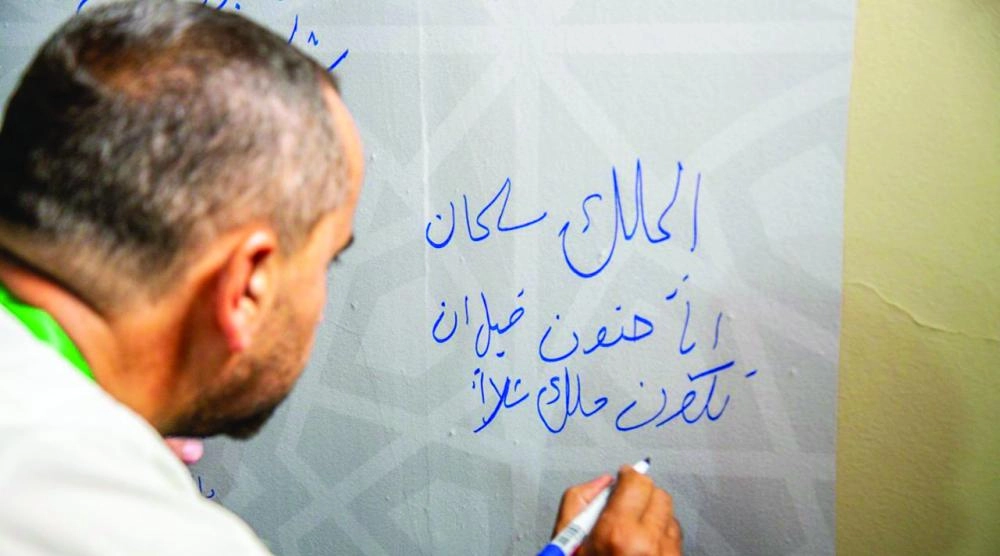 الملك سلمان
انت حنون قبل ان
تكون ملك شكراً